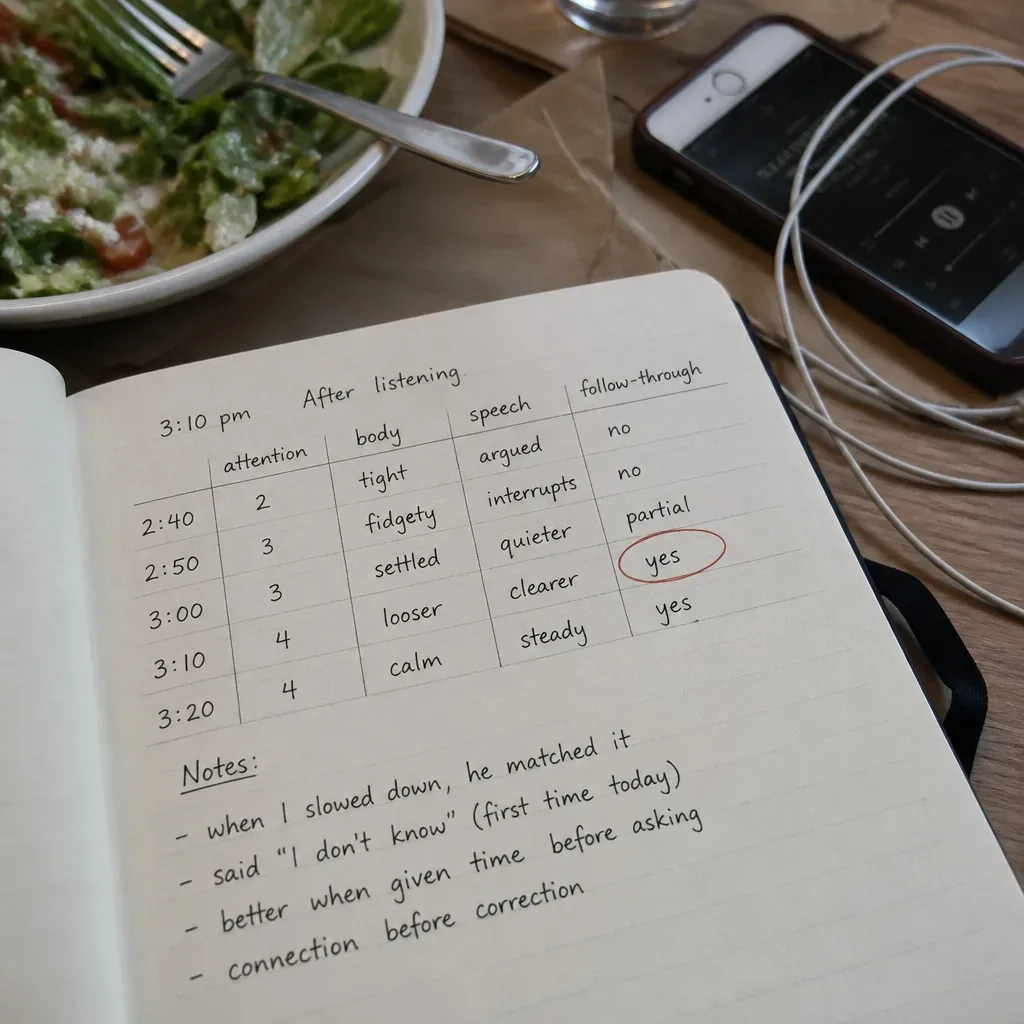 3:10 pm After listening
attention body speech follow-through
2:40 2 tight argued no
2:50 3 fidgety interrupts no
3:00 3 settled quieter partial
3:10 4 looser clearer yes
3:20 4 calm steady yes
Notes:
- when I slowed down, he matched it
- said "I don't know" (first time today)
- better when given time before asking
- connection before correction